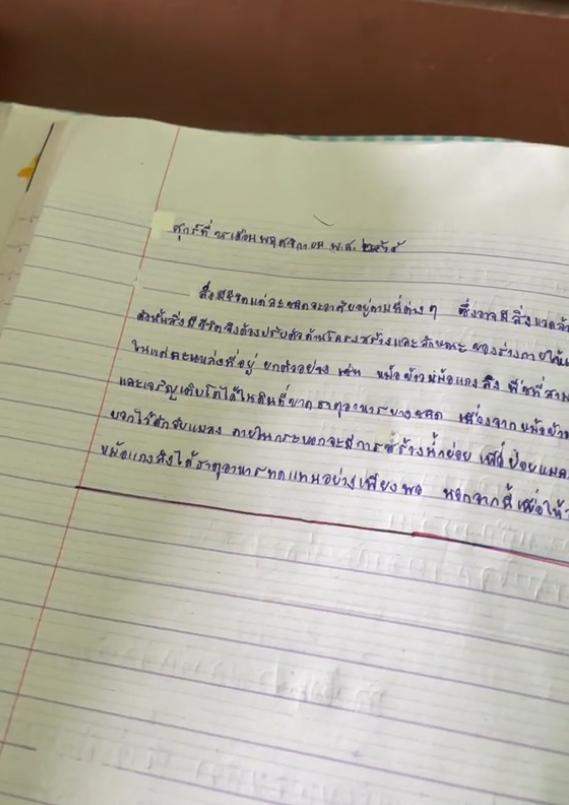 ศุกร์ที่ เดือน พฤศจิกายน พ.ศ.
สิ่งมีชีวิตแต่ละชนิดจะอาศัยอยู่ตามที่ต่าง ๆ ซึ่งอาจมีสิ่งแวดล้
ดังนั้นสิ่งมีชีวิตจึงต้องปรับตัวด้านโครงสร้างและลักษณะ ของร่างกายให้
ในแต่ละแหล่งที่อยู่ ยกตัวอย่าง เช่น หม้อข้าวหม้อแกงลิง พืชที่สาม
และเจริญเติบโตได้ในดินที่ขาด ธาตุอาหารบางชนิด เนื่องจากหม้อข้าว
บอกไว้ดักจับแมลง ภายในกระบอกจะมีการสร้างน้ำย่อย เพื่อย่อยแมล
หม้อแกงลิงได้ธาตุอาหารทดแทนอย่างเพียงพอ นอกจากนี้เพื่อให้